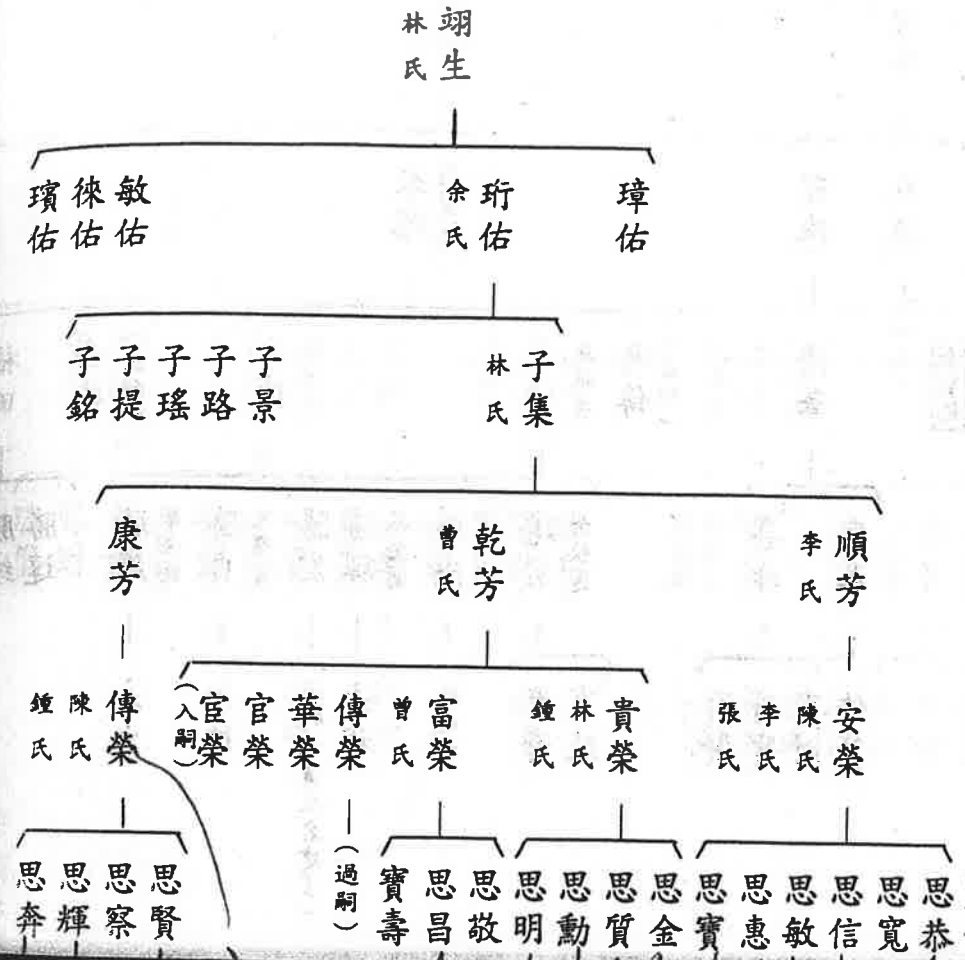 翊生
林氏
璋佑
珩佑
余氏
敏佑
徠佑
璸佑
子集
林氏
子景
子路
子瑤
子提
子銘
順芳
李氏
乾芳
曹氏
康芳
安榮
陳氏
李氏
張氏
貴榮
林氏
鍾氏
富榮
曾氏
傳榮
華榮
官榮
宦榮
(入嗣)
傳榮
陳氏
鍾氏
思恭
思寬
思信
思敏
思惠
思寶
思金
思質
思勳
思明
思敬
思昌
寶壽
(過嗣)
思賢
思察
思輝
思奔